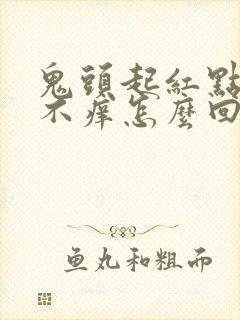 鬼頭起紅點
不癢怎麼回
鱼丸和粗面